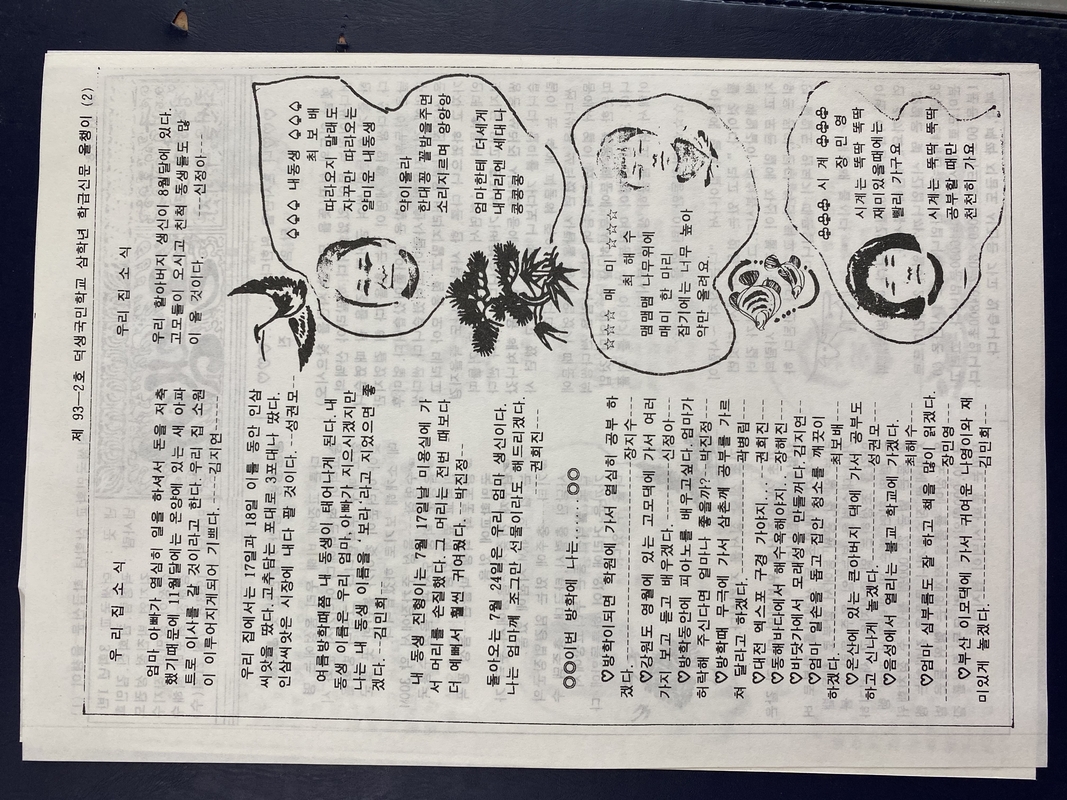 제 93-2호 덕생국민학교 삼학년 학급신문 올챙이 (2)
우 리 집 소 식
엄마 아빠가 열심히 일을 하셔서 돈을 저축
했기때문에 11월달에는 온양에 있는 새 아파
트로 이사를 갈 것이라고 한다. 우리 집 소원
이 이루어지게되어 기쁘다.----김지연----
우리 집에서는 17일과 18일 이틀 동안 인삼
씨앗을 땄다. 고추담는 포대로 3포대나 땄다.
인삼씨앗은 시장에 내다 팔 것이다.--성권모--
여름방학때쯤 내 동생이 태어나게 된다. 내
동생 이름은 우리 엄마, 아빠가 지으시겠지만
나는 내 동생 이름을 '보라'라고 지었으면 좋
겠다. --김민희----
내 동생 진형이는 7월 17일날 미용실에 가
서 머리를 손질했다. 그 머리는 전번 때보다
더 예뻐서 훨씬 귀여웠다. --박진정----
돌아오는 7월 24일은 우리 엄마 생신이다.
나는 엄마께 조그만 선물이라도 해드리겠다.
권희진---
◎◎이번 방학에 나는...... ◎◎
♡방학이되면 학원에 가서 열심히 공부 하
겠다.------------------------장지수--
♡강원도 영월에 있는 고모댁에 가서 여러
가지 보고 듣고 배우겠다.-----신정아---
♡방학동안에 피아노를 배우고싶다. 엄마가
허락해 주신다면 얼마나 좋을까?--박진정--
♡방학때 무극에 가서 삼촌께 공부를 가르
쳐 달라고 하겠다.------------곽병림--
♡대전 엑스포 구경 가야지...--권희진---
♡동해바다에서 해수욕해야지..--장해진---
♡바닷가에서 모래성을 만들꺼다.김지연--
♡엄마 일손을 돕고 집안 청소를 깨끗이
하겠다.----------------------최보배--
♡온산에 있는 큰아버지 댁에 가서 공부도
하고 신나게 놀겠다.----------성권모--
♡음성에서 열리는 불교 학교에 가겠다.
최해수--
♡엄마 심부름도 잘 하고 책을 많이 읽겠다.
장민영--
♡부산 이모댁에 가서 귀여운 나영이와 재
미있게 놀겠다. --------------김민희---
우리 집 소 식
우리 할아버지 생신이 8월달에 있다.
고모들이 오시고 친척 동생들도 많
이 올 것이다. ----신정아----
♤♤♤ 내동생 ♤♤♤
최 보 배
따라오지 말래도
자꾸만 따라오는
얄미운 내동생
약이올라
한대꽁 꿀밤을주면
소리지르며 앙앙앙
엄마한테 더세게
내머리엔 세대나
콩콩콩
☆☆☆ 매 미 ☆☆☆
최 해 수
맴맴맴 나무위에
매미 한 마리
잡기에는 너무 높아
약만 올려요.
♧♧♧ 시 계 ♧♧♧
장 민 영
시계는 뚝딱 뚝딱
재미있을때에는
빨리 가구요
시계는 뚝딱 뚝딱
공부할 때만
천천히 가요